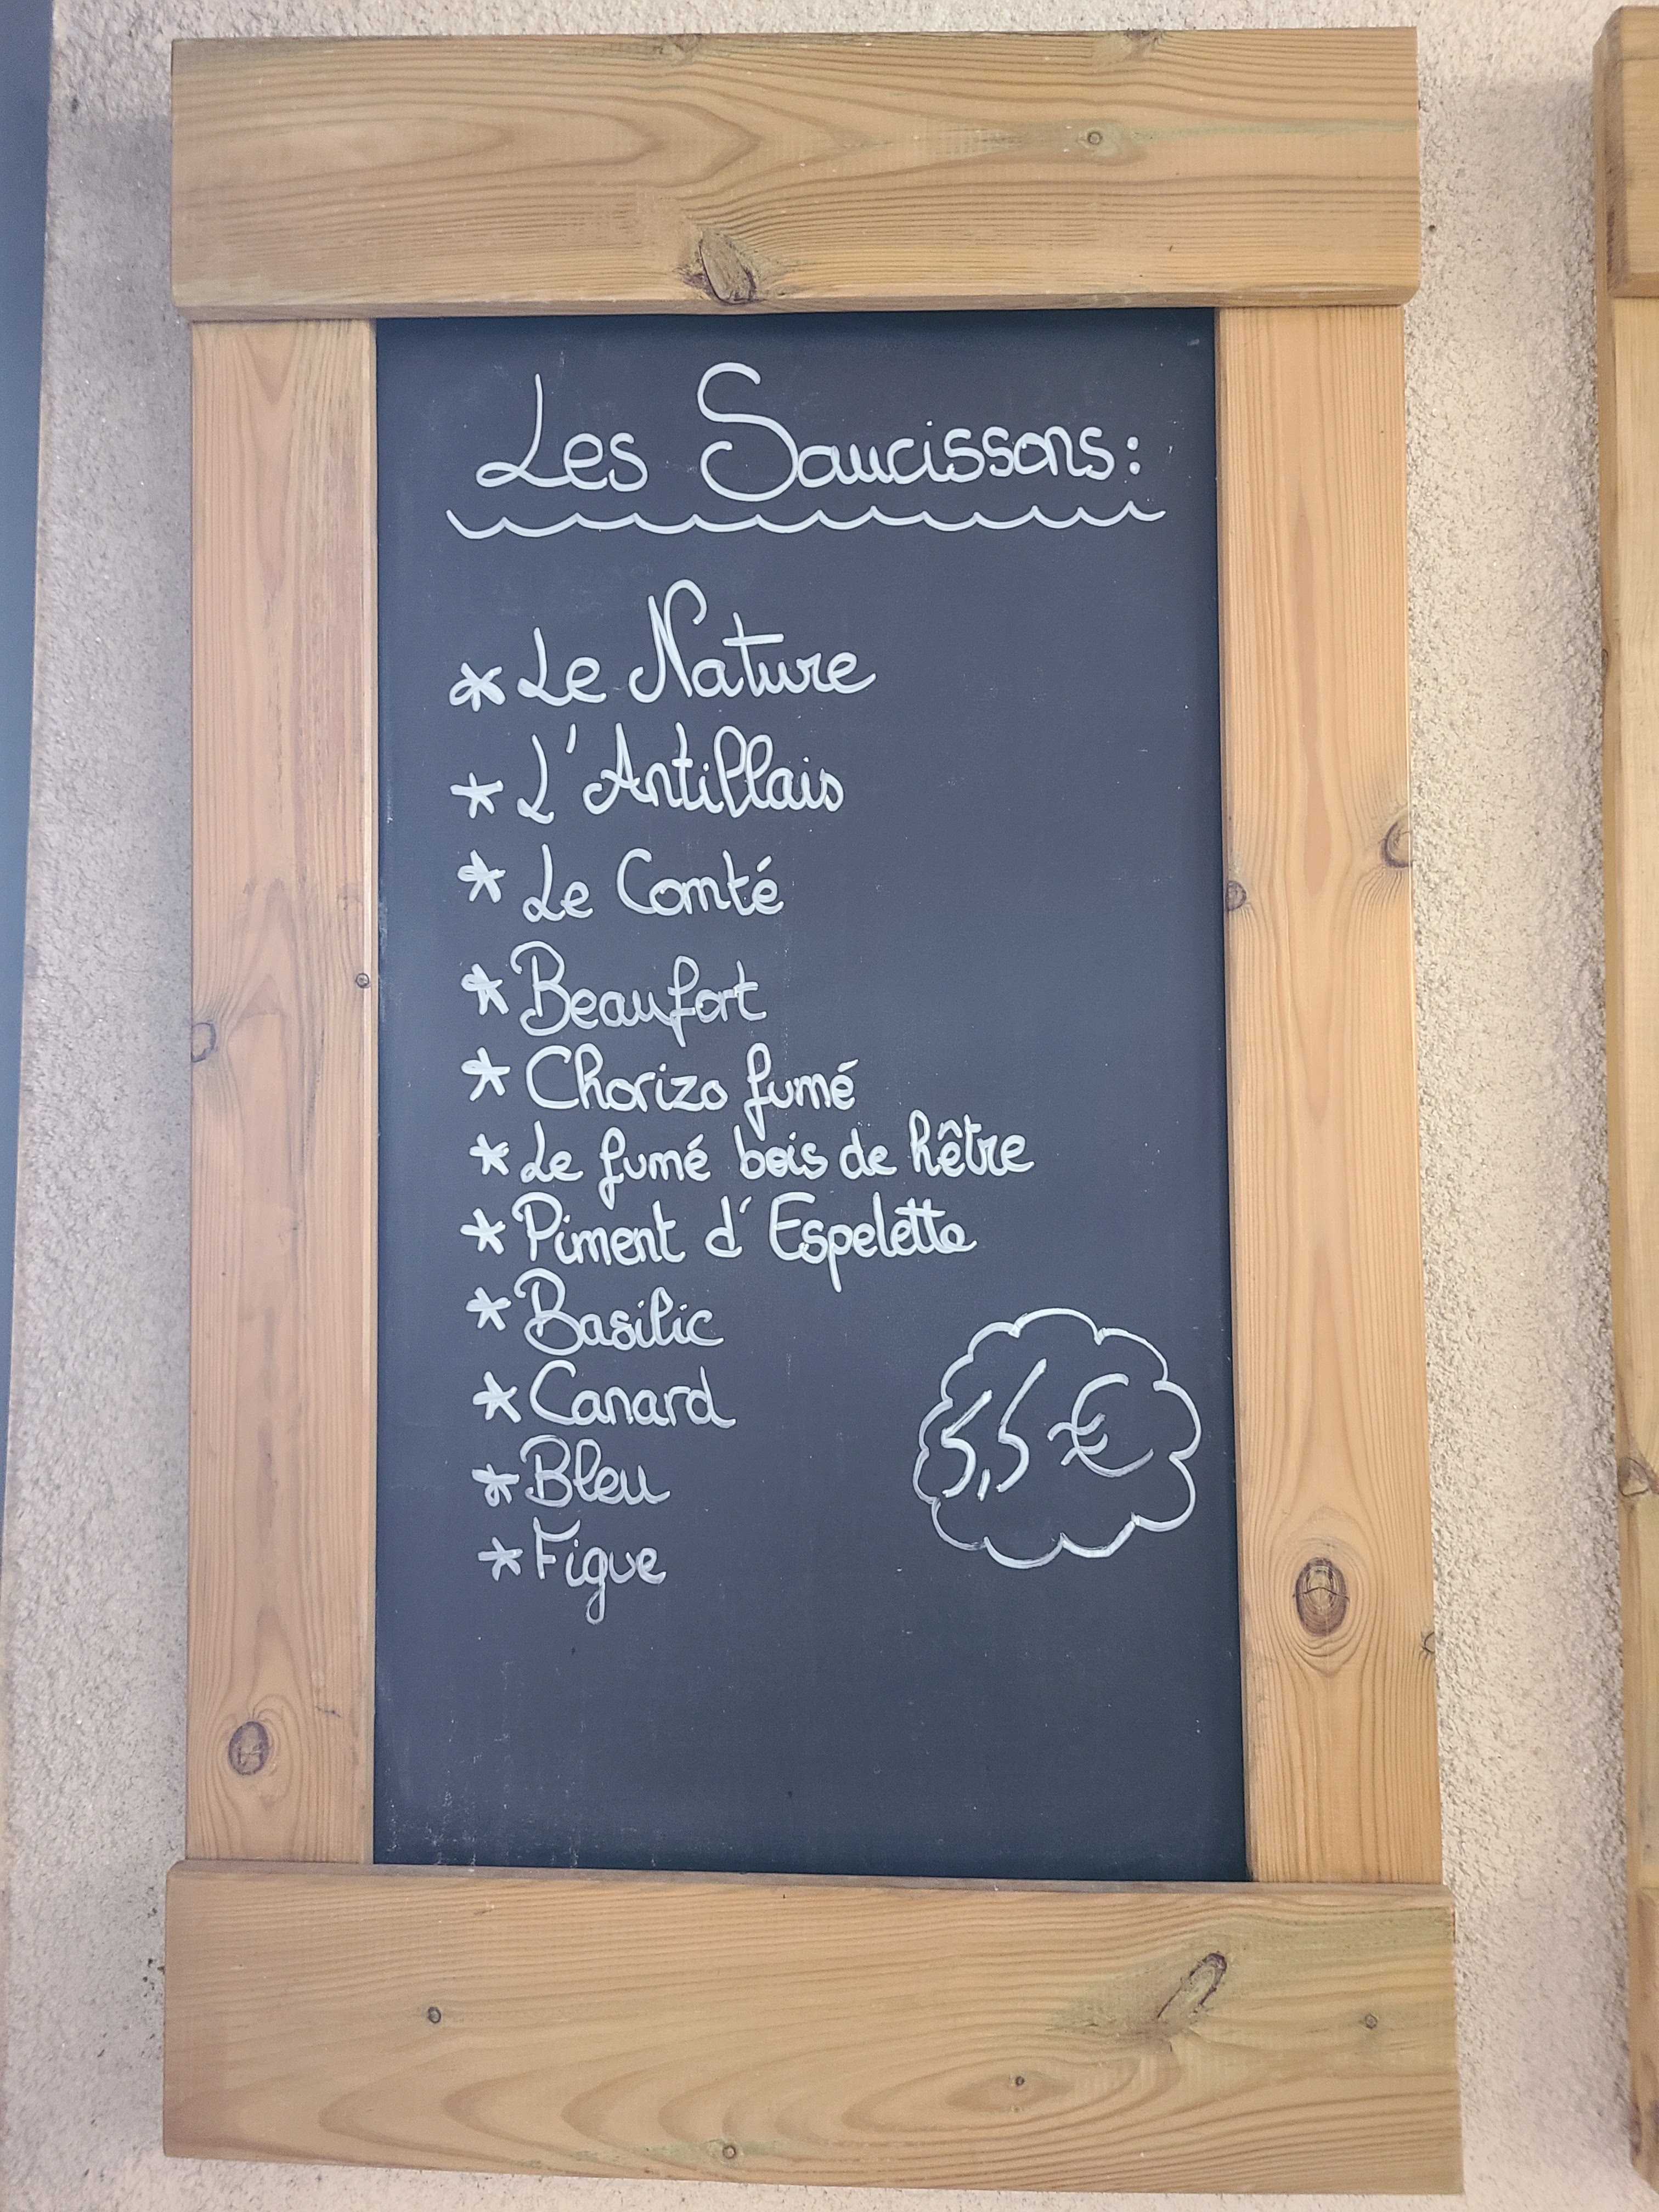 Les Saucissons:
* Le Nature
* L'Antillais
* Le Comté
* Beaufort
* Chorizo fumé
* Le fumé bois de hêtre
* Piment d'Espelette
* Basilic
* Canard
* Bleu
* Figue
5,5 €